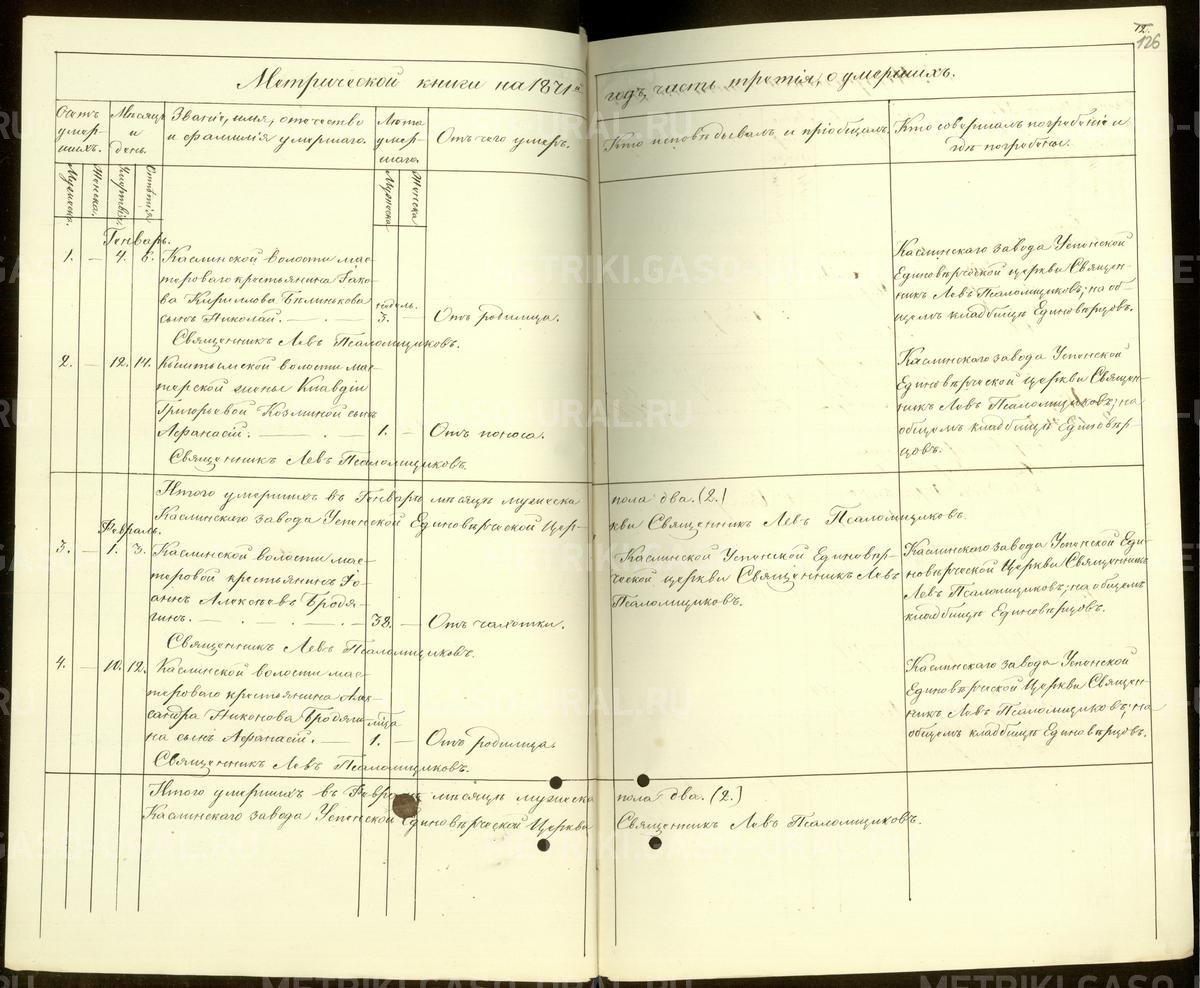 12.
126
Метрической книги на 1871й
годъ, часть третія, о умершихъ.
Счетъ умер-
шихъ.
Мѣсяцъ
и
день.
Званіе, имя, отчество
и фамилія умершаго.
Лѣта
умер-
шаго.
Отъ чего умеръ.
Кто исповѣдывалъ и пріобщалъ.
Кто совершалъ погребеніе и
гдѣ погребены.
Мужеска.
Женска.
Смерти.
Отпѣтія
Мужеска
Женска
Генварь.
1. — 4. 6. Каслинской волости мас-
тероваго крестьянина Іако-
ва Кириллова Блинькова
сынъ Николай. недѣль. 3. — Отъ родимца.
Священникъ Левъ Псаломщиковъ.
Каслинскаго завода Успенской
Единовѣрческой церкви Священ-
никъ Левъ Псаломщиковъ; на об-
щемъ кладбищѣ Единовѣрцовъ.
2. — 12. 14. Кыштымской волости мас-
терской жены Клавдіи
Григорьевой Козминой сынъ
Афанасій. 1. — Отъ поноса.
Священникъ Левъ Псаломщиковъ.
Каслинскаго завода Успенской
Единовѣрческой церкви Священ-
никъ Левъ Псаломщиковъ; на
общемъ кладбищѣ Единовѣр-
цовъ.
Итого умершихъ въ Генварѣ мѣсяцѣ мужеска пола два. (2.)
Каслинскаго завода Успенской Единовѣрческой Цер-
кви Священникъ Левъ Псаломщиковъ.
Февраль.
3. — 1. 3. Каслинской волости мас-
теровой крестьянинъ Іо-
аннъ Алексѣевъ Бродя-
гинъ. 38. — Отъ чахотки.
Священникъ Левъ Псаломщиковъ.
Каслинской Успенской Единовѣр-
ческой церкви Священникъ Левъ
Псаломщиковъ.
Каслинскаго завода Успенской Еди-
новѣрческой Церкви Священникъ
Левъ Псаломщиковъ; на общемъ
кладбищѣ Единовѣрцовъ.
4. — 10. 12. Каслинской волости мас-
тероваго крестьянина Алек-
сандра Никонова Бродяги-
на сынъ Афанасій. 1. — Отъ родимца.
Священникъ Левъ Псаломщиковъ.
Каслинскаго завода Успенской
Единовѣрческой Церкви Священ-
никъ Левъ Псаломщиковъ; на
общемъ кладбищѣ Единовѣрцовъ.
Итого умершихъ въ Февралѣ мѣсяцѣ мужеска пола два. (2.)
Каслинскаго завода Успенской Единовѣрческой Церкви
Священникъ Левъ Псаломщиковъ.
METRIKI.GASO-URAL.RU